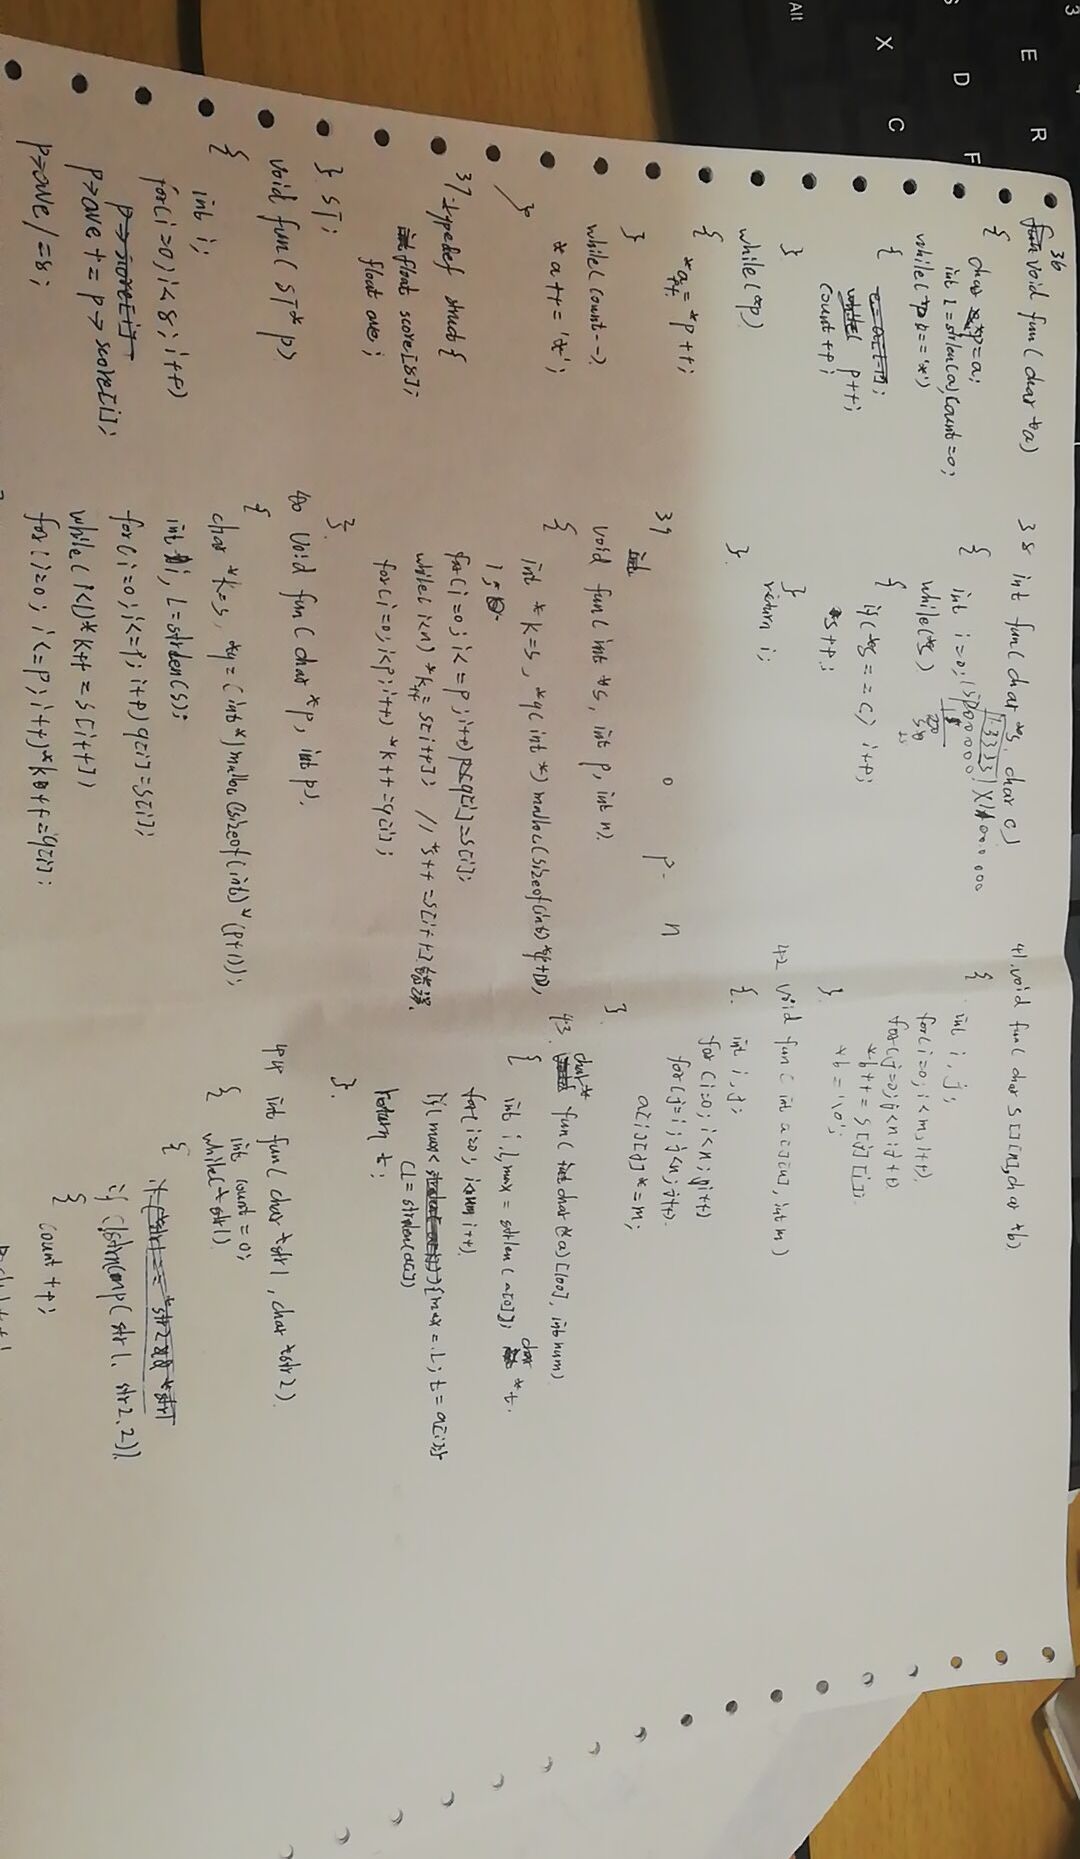 36
void fun(char *a)
{
char *p=a;
int l=strlen(a),count=0;
while(*p=='*')
{
p++;
count++;
}
while(*p)
{
*a++=*p++;
}
while(count--)
*a++='*';
}
37.typedef struct{
float score[8];
float ave;
}ST;
void fun(ST *p)
{
int i;
for(i=0;i<8;i++)
p->ave+=p->score[i];
p->ave/=8;
38 int fun(char *s, char c)
{
int i=0;
while(*s)
{
if(*s==c) i++;
s++;
}
return i;
}
39
0 p- n
void fun(int *s, int p, int n).
{
int *k=s,
for(i=0;i<=p;i++) q[i]=s[i];
while(i<n) *k++=s[i++];
for(i=0;i<p;i++) *k++=q[i];
}.
40 void fun(char *p, int p).
{
char *k=s, *q=(int*)malloc(sizeof(int)*(p+1));
int i, l=strlen(s);
for(i=0;i<=p;i++) q[i]=s[i];
while(i<l) *k++=s[i++])
for(i=0;i<=p;i++)
41.void fun(char s[][n],char *b)
{
int i,j;
for(i=0;i<m;i++).
for(j=0;j<n;j++)
*b++=s[j][i];
*b='\0';
}.
42 void fun(int a[][n],int m)
{.
int i,j;
for(i=0;i<n;i++)
for(j=i;j<n;j++).
a[i][j]*=m;
}.
43. char* fun(char(*a)[100], int num)
{
int i,l,max=strlen(a[0]); char *t.
for(i=0; i<num i++)
if(max<
(l=strlen(a[i]))
{max=l;t=a[i];}
return t;
}.
44 int fun(char *str1, char *str2).
{
int count=0;
while(*str1)
{
if(!strncmp(str1, str2,2)).
{
count++;